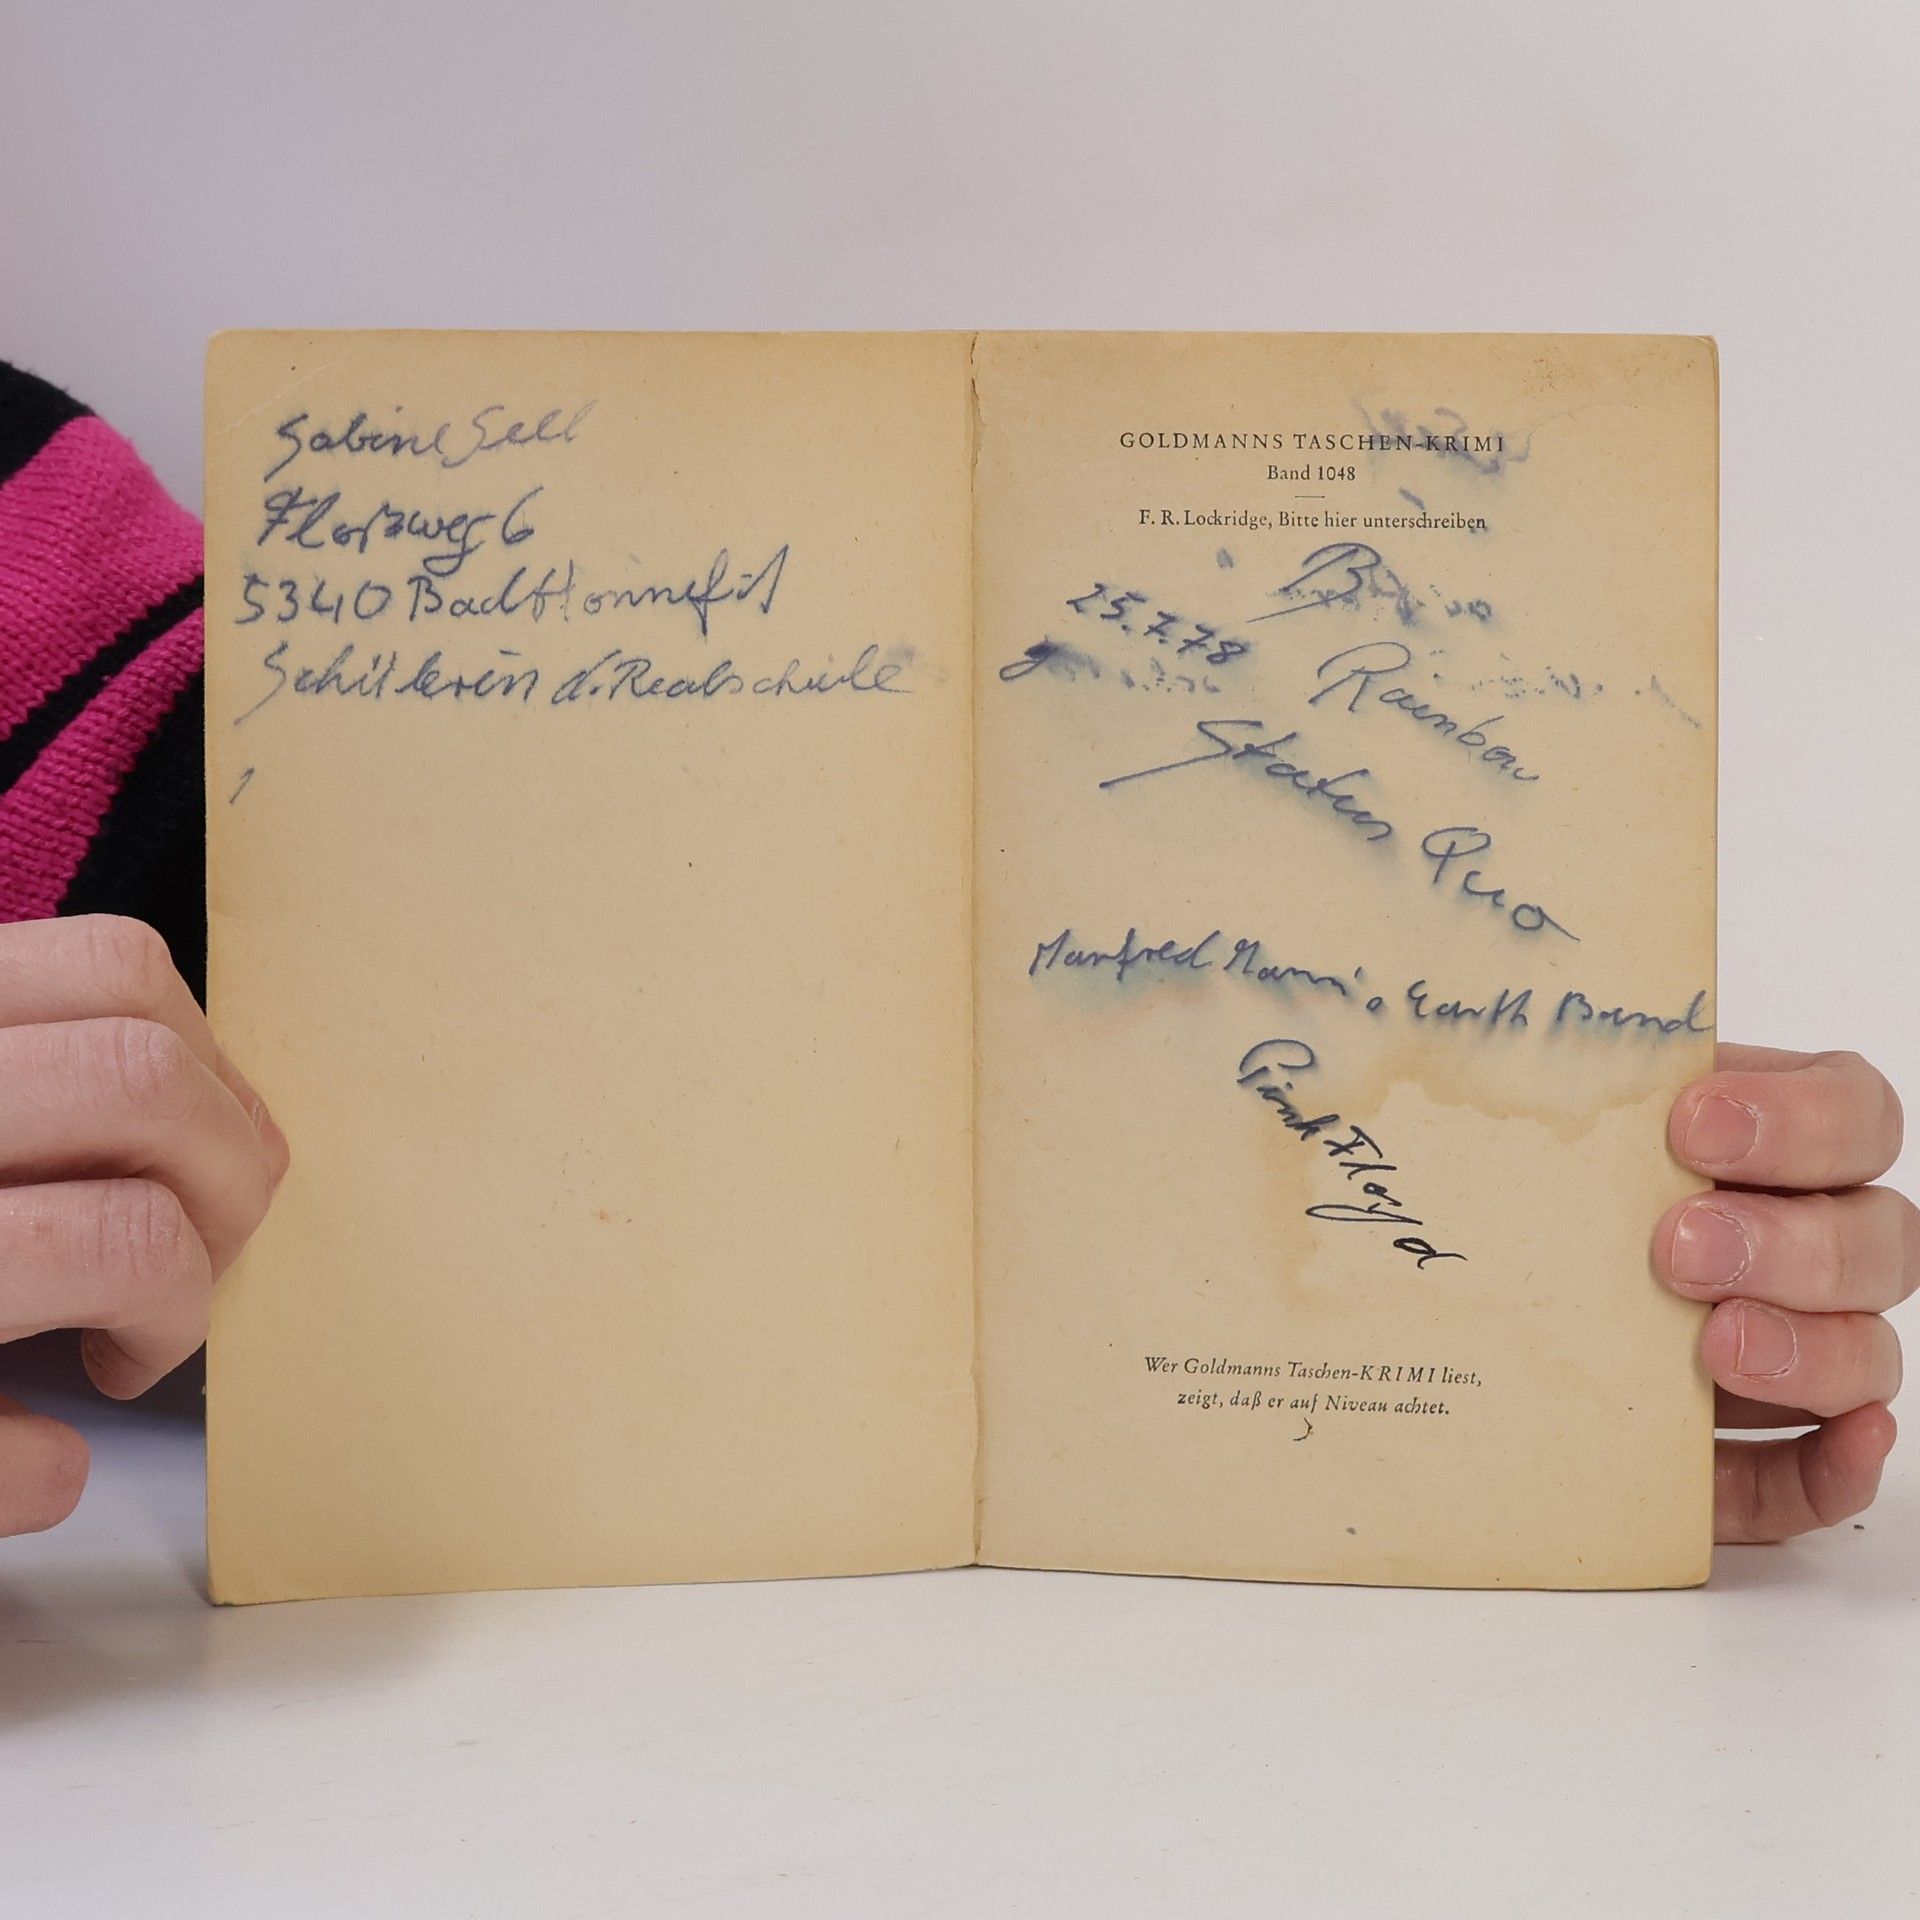 Sabine Sell
Floßweg 6
5340 Bad Honnef
Schülerin d. Realschule
GOLDMANNS TASCHEN-KRIMI
Band 1048
F. R. Lockridge, Bitte hier unterschreiben
25.7.78
Rainbow
Status Quo
Manfred Mann's Earth Band
Pink Floyd
Wer Goldmanns Taschen-KRIMI liest,
zeigt, daß er auf Niveau achtet.